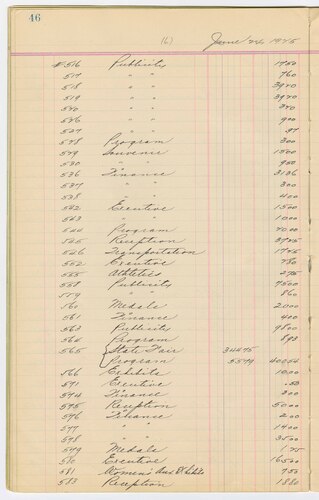 46
(6) June 24, 1925
#516 Publicity 1750
517 " " 760
518 " " 3970
519 " " 3970
520 " " 370
526 " " 900
527 " " 97
528 Program 300
529 Souvenir 1500
530 " " 950
536 Finance 3136
537 " " 300
538 " " 400
542 Executive 1500
543 " " 1000
544 Program 7000
545 Reception 3725
546 Transportation 1725
552 Executive 780
555 Athletics 275
558 Publicity 7500
559 " " 860
560 Medals 2000
561 Finance 400
563 Publicity 9800
564 Program 898
565 State Fair 34475
Program 5579 40054
566 Exhibits 1000
571 Executive 50
574 Finance 300
575 Reception 5000
576 Finance 200
577 " " 1400
578 " " 3500
579 Medals 175
580 Executive 16500
581 Women's Aux Exhibits 750
583 Reception 1880